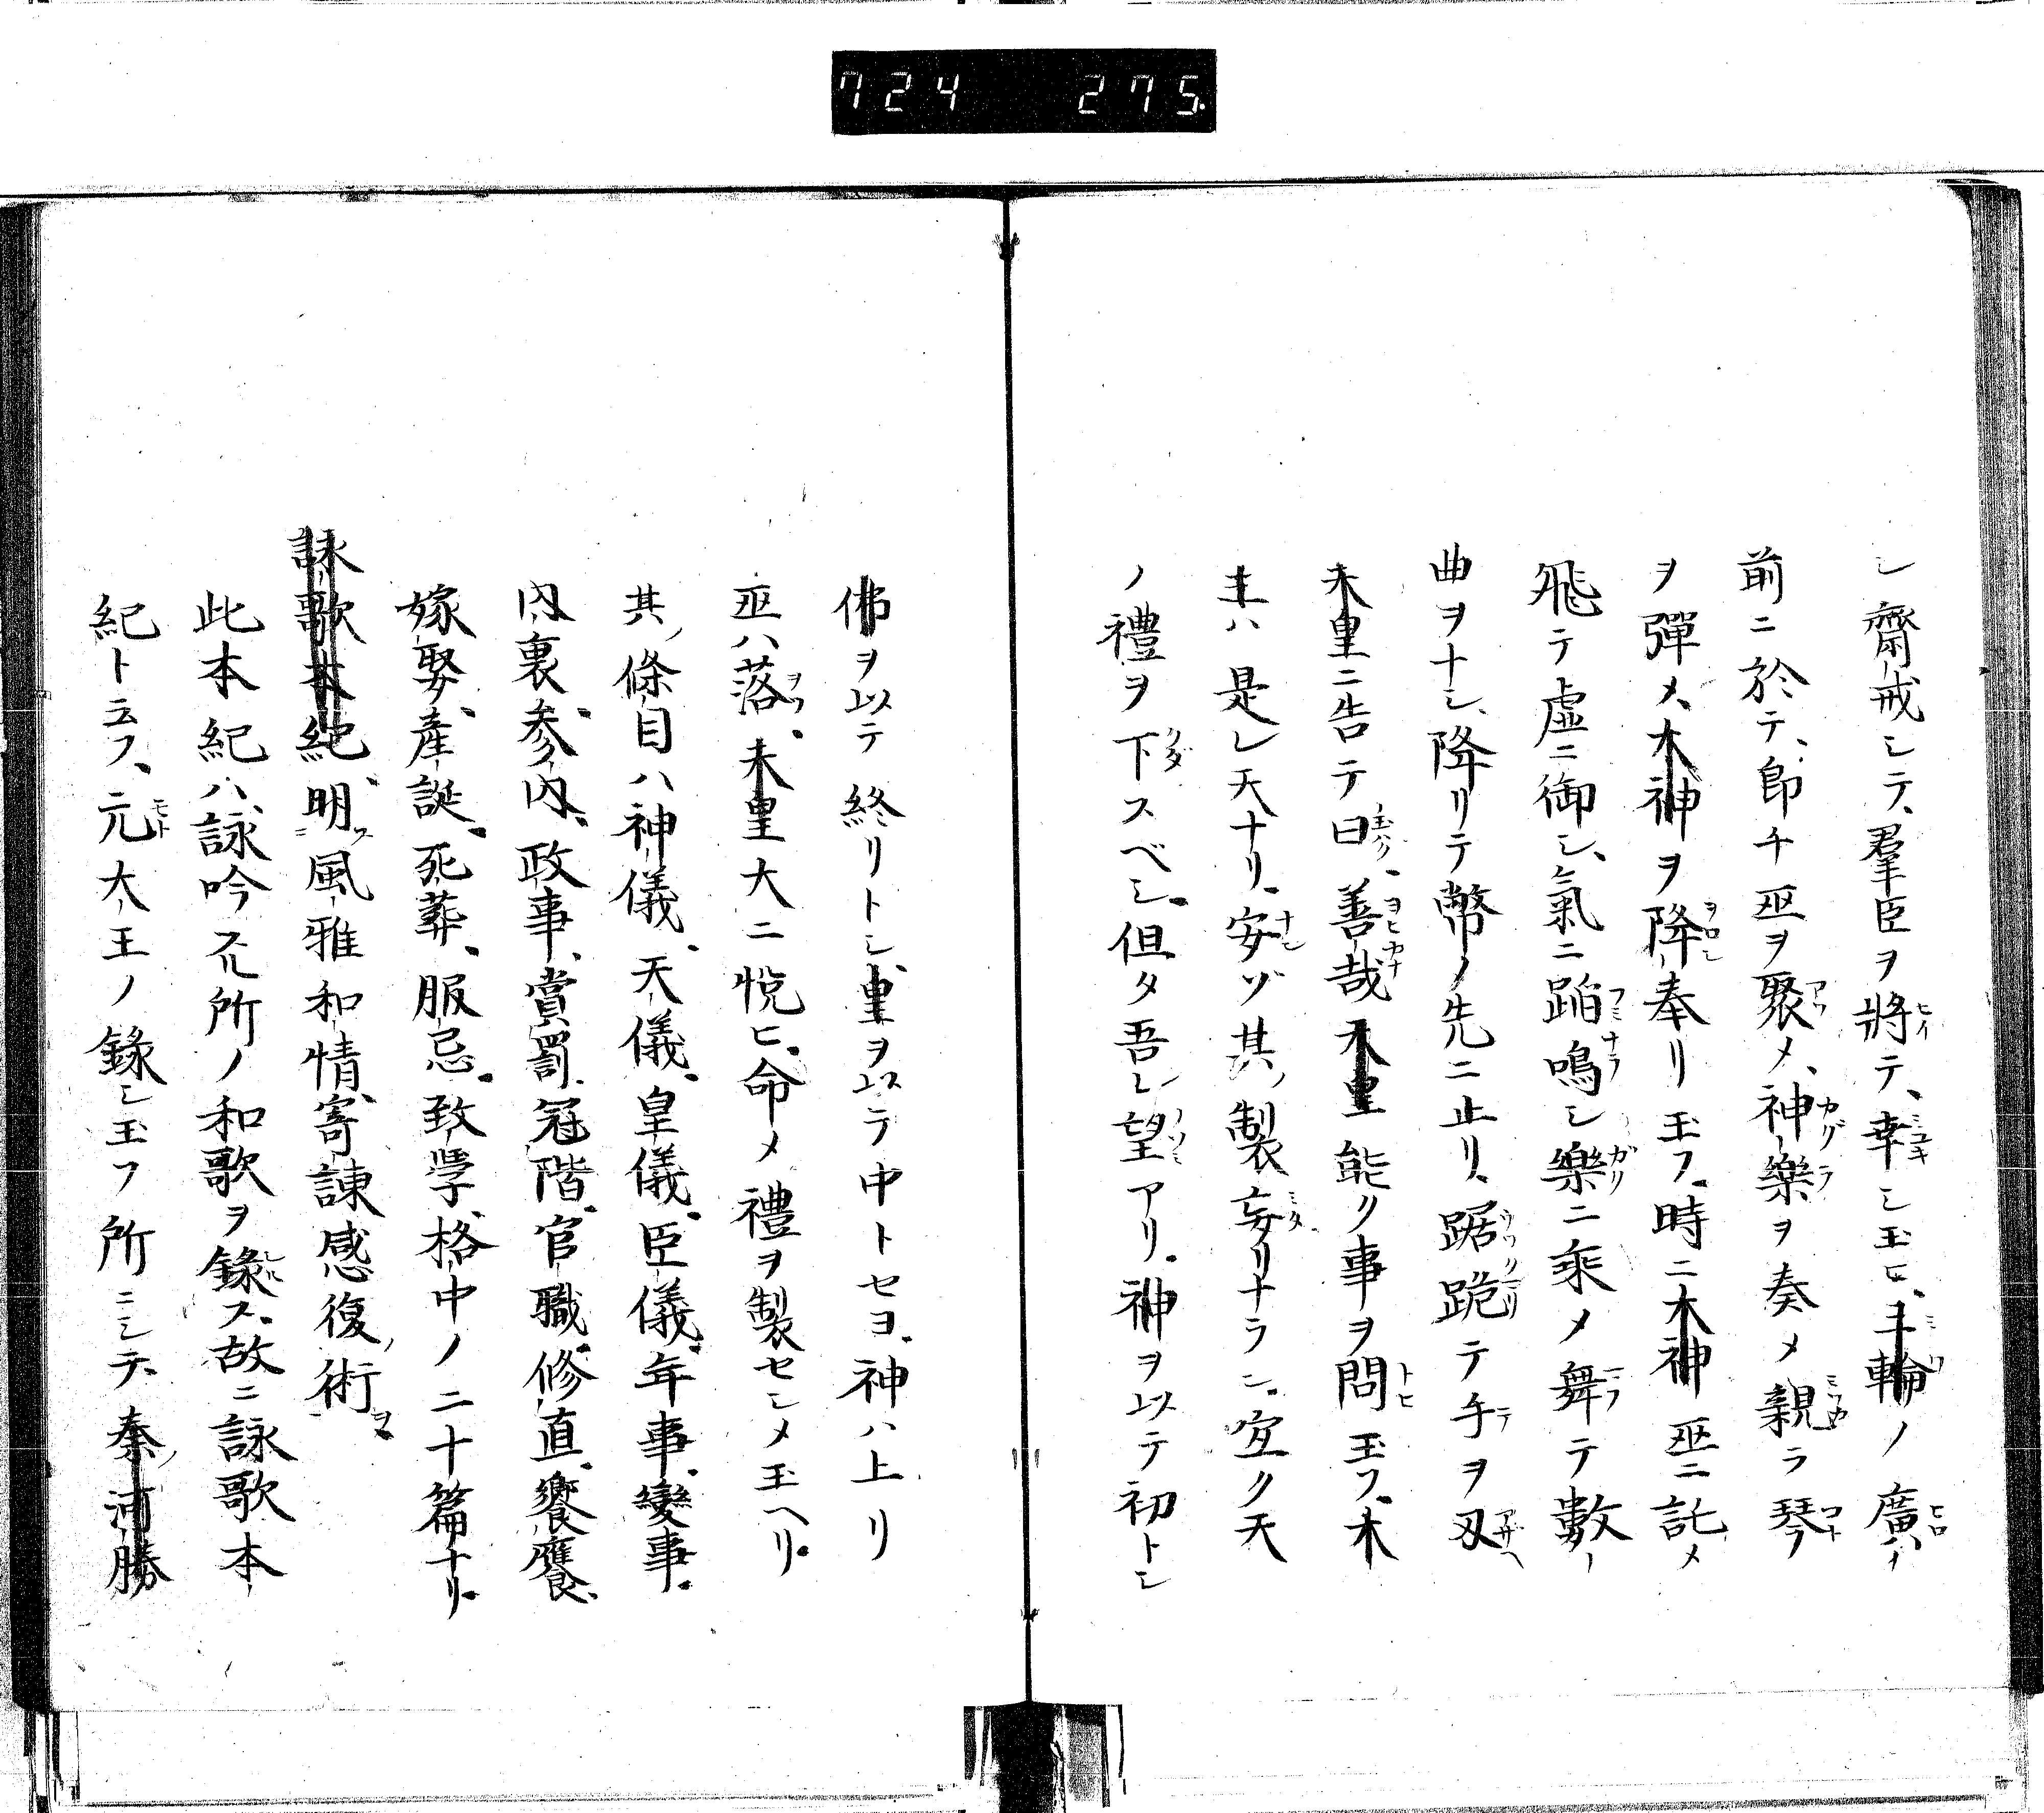 724 275.
シ齋戒シテ、羣臣ヲ將テ、幸シ玉ヒ、三輪ノ廣
前ニ於テ、即チ巫ヲ聚メ、神樂ヲ奏メ親ラ琴
ヲ彈メ、大神ヲ降奉リ玉フ。時ニ大神巫ニ託メ
飛テ虚ニ御シ、氣ニ蹈鳴シ樂ニ乘メ舞テ數
曲ヲナシ、降リテ幣ノ先ニ止リ、踞跪テ手ヲ叉
天皇ニ告テ曰、善哉天皇能ク事ヲ問玉フ、木
主ハ是レ天ナリ、安ゾ其ノ製妄リナラン。宜ク天
ノ禮ヲ下スベシ。但タ吾レ望アリ。神ヲ以テ初トシ
佛ヲ以テ終リトシ、皇ヲ以テ中トセヨ。神ハ上リ
巫ハ落。天皇大ニ悅ヒ、命メ禮ヲ製セシメ玉ヘリ。
其ノ條目ハ神儀、天儀、皇儀、臣儀、年事、變事、
内裏、參内、政事、賞罰、冠階、官職、修直、饗應、
嫁娶、産誕、死葬、服忌、致學、格中ノ二十篇ナリ。
詠歌本紀、明風雅和情、寄諫感復ノ術ヲ
此本紀ハ、詠吟スル所ノ和歌ヲ錄ス、故ニ詠歌本
紀ト云フ、元大王ノ錄シ玉フ所ニシテ、秦ノ河勝